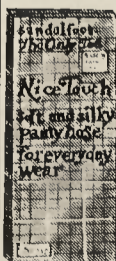 sandalfoot
Nice Touch
soft and silky
panty hose
for everyday
wear